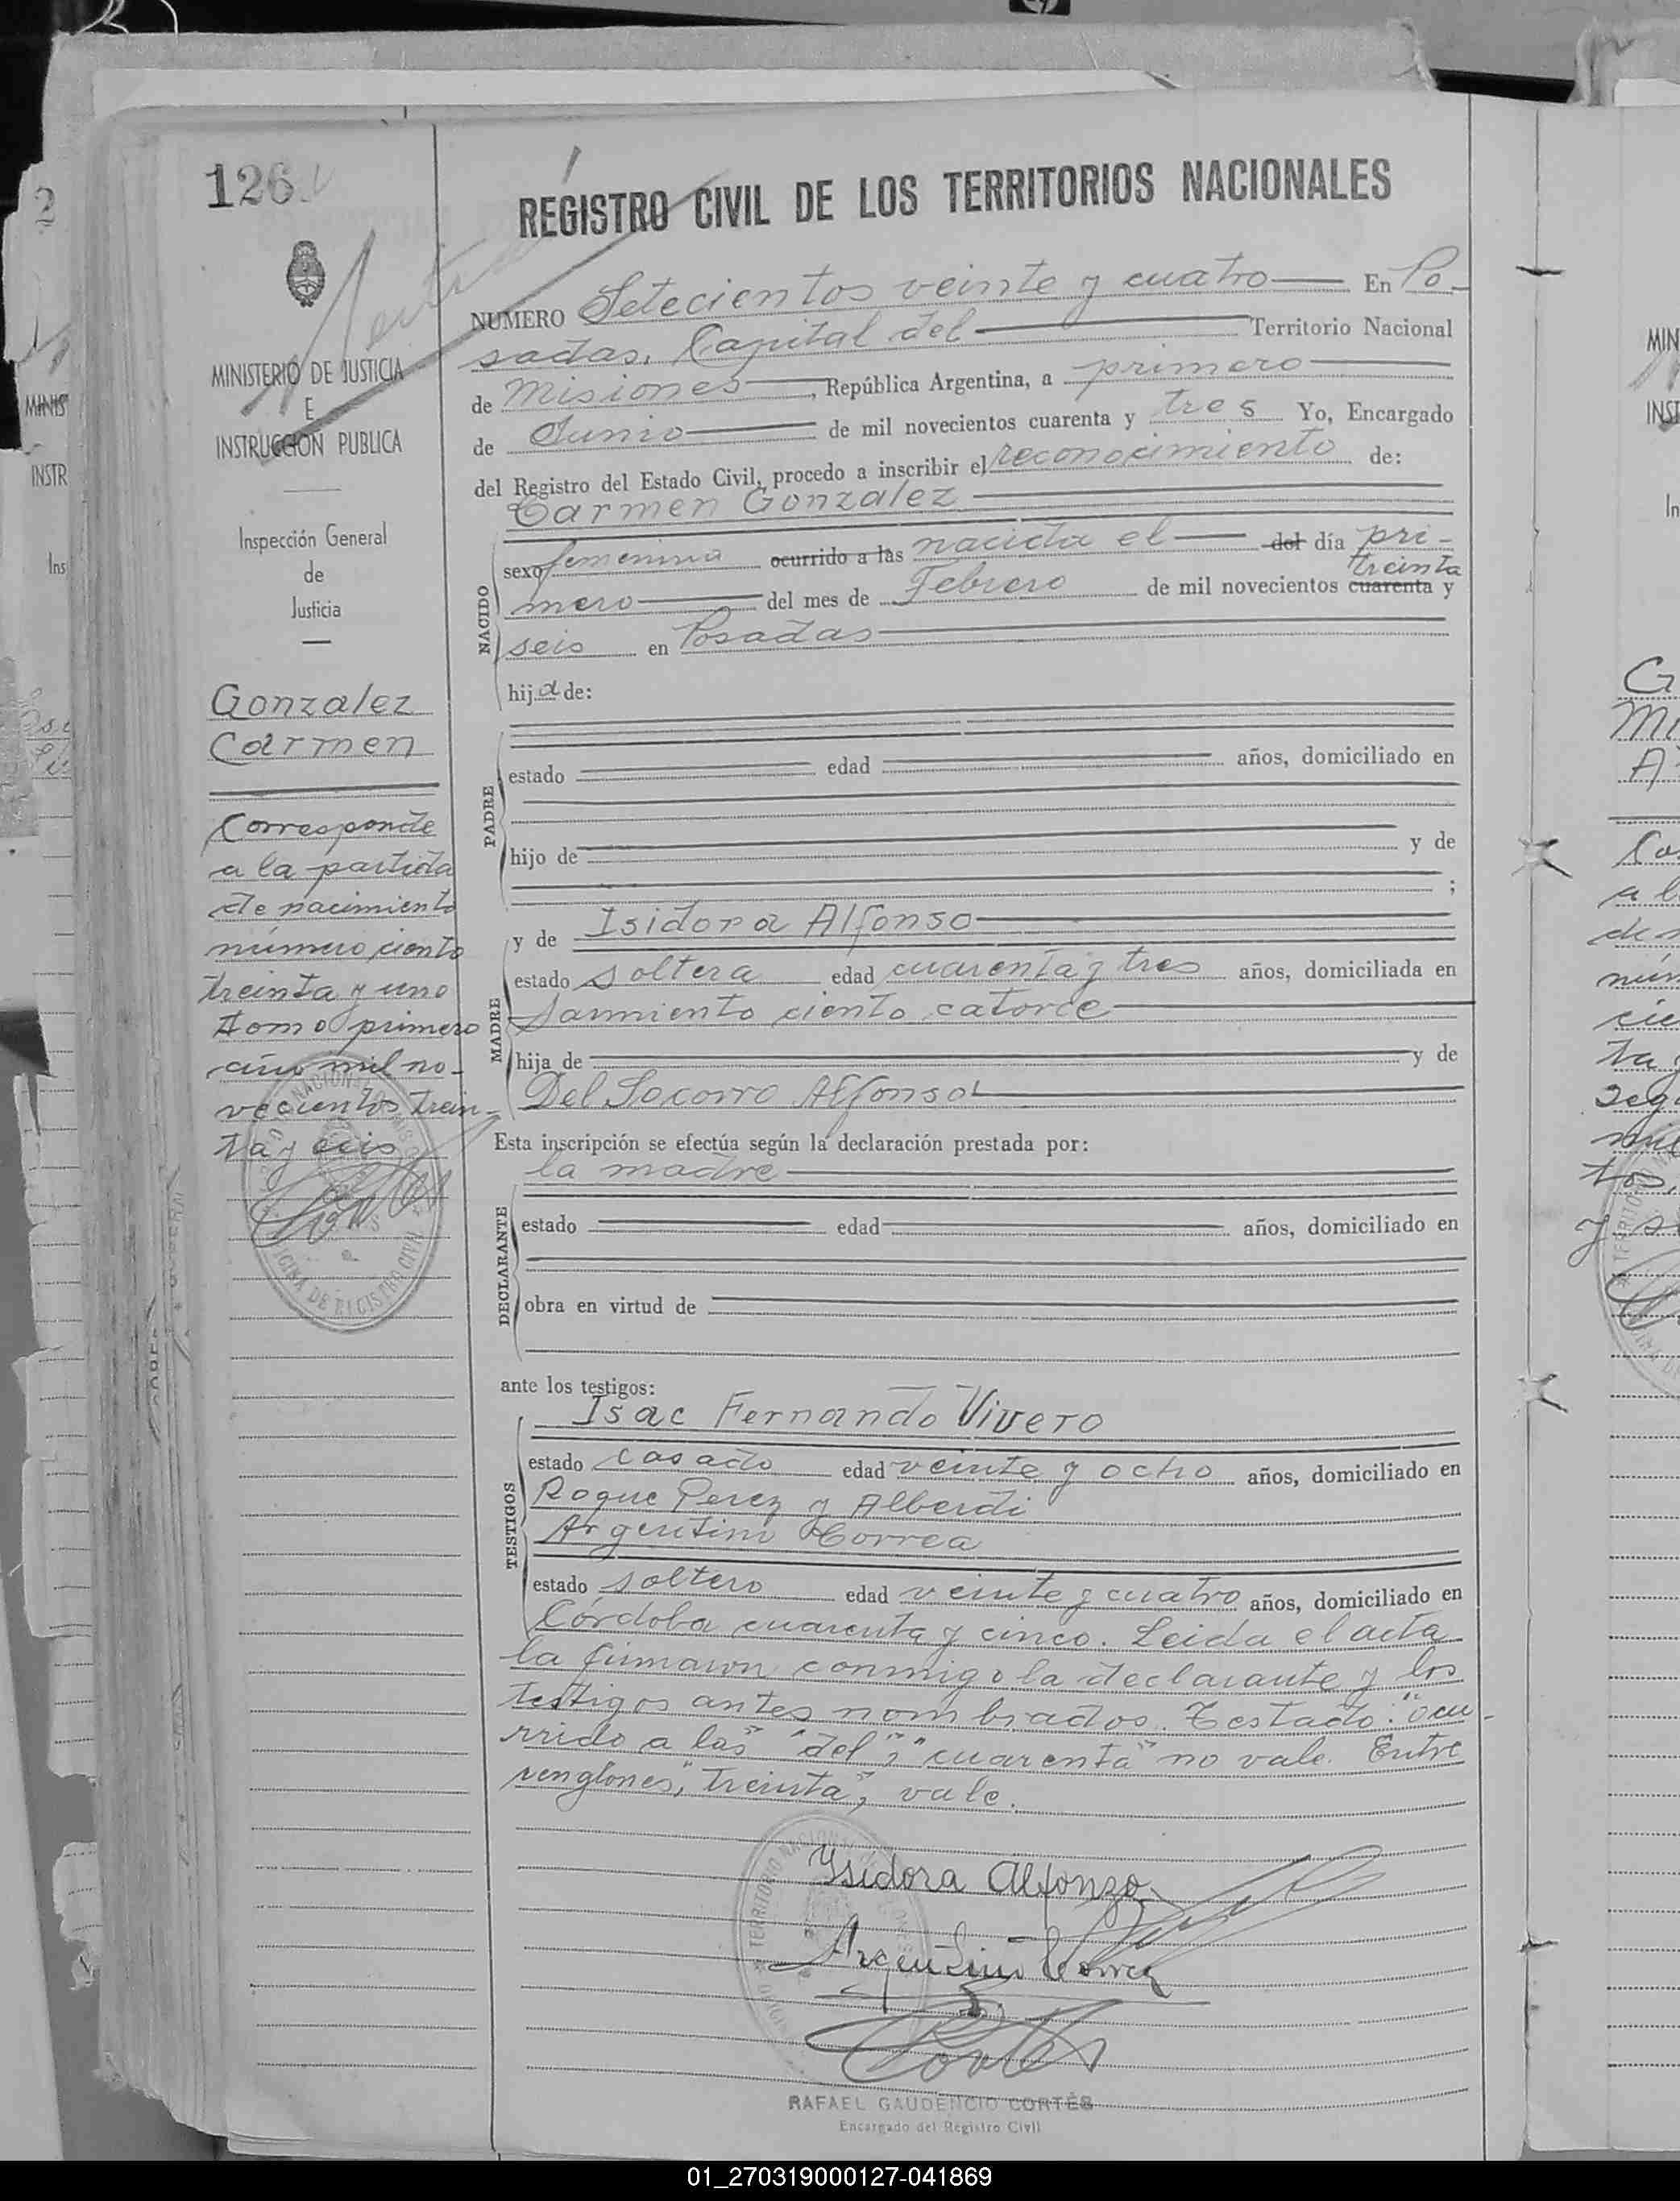 126
REGISTRO CIVIL DE LOS TERRITORIOS NACIONALES
MINISTERIO DE JUSTICIA
E
INSTRUCCION PUBLICA
Inspección General
de
Justicia
Gonzalez
Carmen
Corresponde
a la partida
de nacimiento
número ciento
treinta y uno
tomo primero
año mil no-
vecientos trein-
ta y seis
NUMERO Setecientos veinte y cuatro En Po-
sadas, Capital del Territorio Nacional
de Misiones, República Argentina, a primero
de Junio de mil novecientos cuarenta y tres Yo, Encargado
del Registro del Estado Civil, procedo a inscribir el reconocimiento de:
Carmen Gonzalez
NACIDO
sexo femenina ocurrido a las nacida el del día pri-
treinta
mero del mes de Febrero de mil novecientos cuarenta y
seis en Posadas
hija de:
PADRE
estado edad años, domiciliado en
hijo de y de
;
MADRE
y de Isidora Alfonso
estado soltera edad cuarenta y tres años, domiciliada en
Sarmiento ciento catorce
hija de y de
Del Socorro Alfonso
Esta inscripción se efectúa según la declaración prestada por:
la madre
DECLARANTE
estado edad años, domiciliado en
obra en virtud de
ante los testigos:
TESTIGOS
Isac Fernando Vivero
estado casado edad veinte y ocho años, domiciliado en
Roque Perez y Alberdi
Argentino Correa
estado soltero edad veinte y cuatro años, domiciliado en
Córdoba cuarenta y cinco. Leida el acta
la firmaron conmigo la declarante y los
testigos antes nombrados. Testado: "ocu-
rrido a las" "del", "cuarenta" no vale. Entre
renglones, "treinta", vale.
Ysidora Alfonzo
Argentino Correa
Cortés
RAFAEL GAUDENCIO CORTÉS
Encargado del Registro Civil
01_270319000127-041869